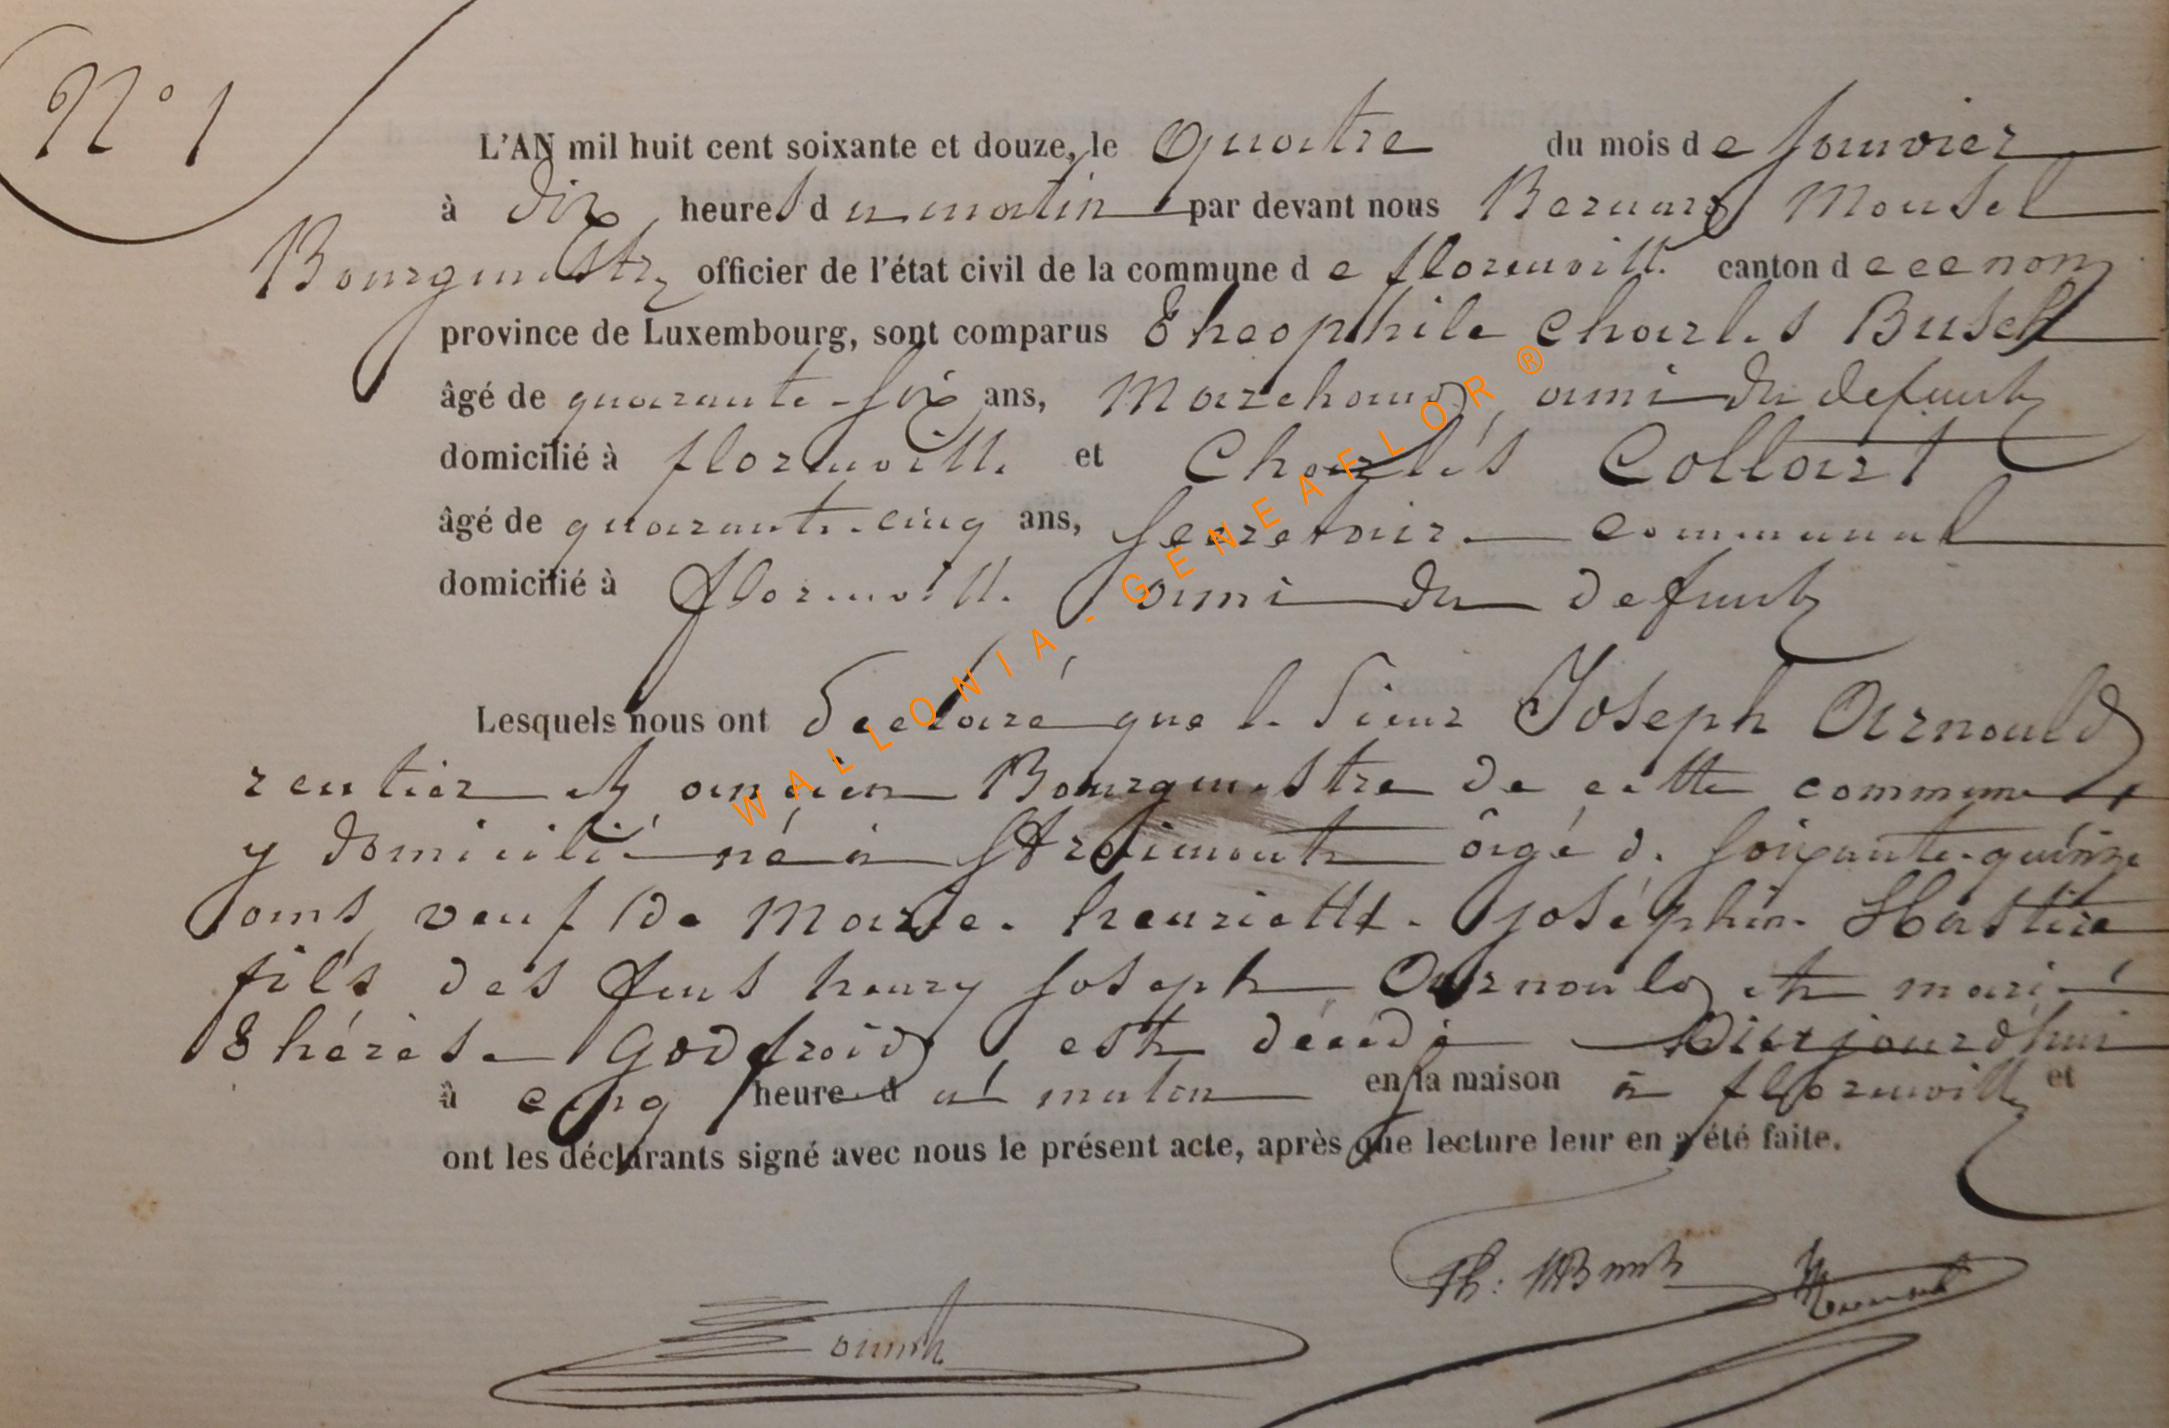 N° 1
L'AN mil huit cent soixante et douze, le Quatre du mois de Janvier
à dix heures du matin par devant nous Bernard Mousel
Bourgmestre officier de l'état civil de la commune de florenville canton de
province de Luxembourg, sont comparus Théophile Charles Busch
âgé de quarante-six ans, Marchand, ami du defunt
domicilié à florenville et Charles Collart
âgé de quarante-cinq ans, Secretaire communal
domicilié à florenville ami du defunt
Lesquels nous ont declaré que le Sieur Joseph Arnould
rentier et ancien Bourgmestre de cette commune
y domicilié né à âgé de soixante-quinze
ans, veuf de Marie henriette joséphine
fils des feus henry joseph Arnould et marie
Thérèse Godfroid, est décédé aujourd'hui
à cinq heure du matin en la maison à florenville et
ont les déclarants signé avec nous le présent acte, après que lecture leur en a été faite.
Th: Busch
WALLONIA - GENEAFLOR ®